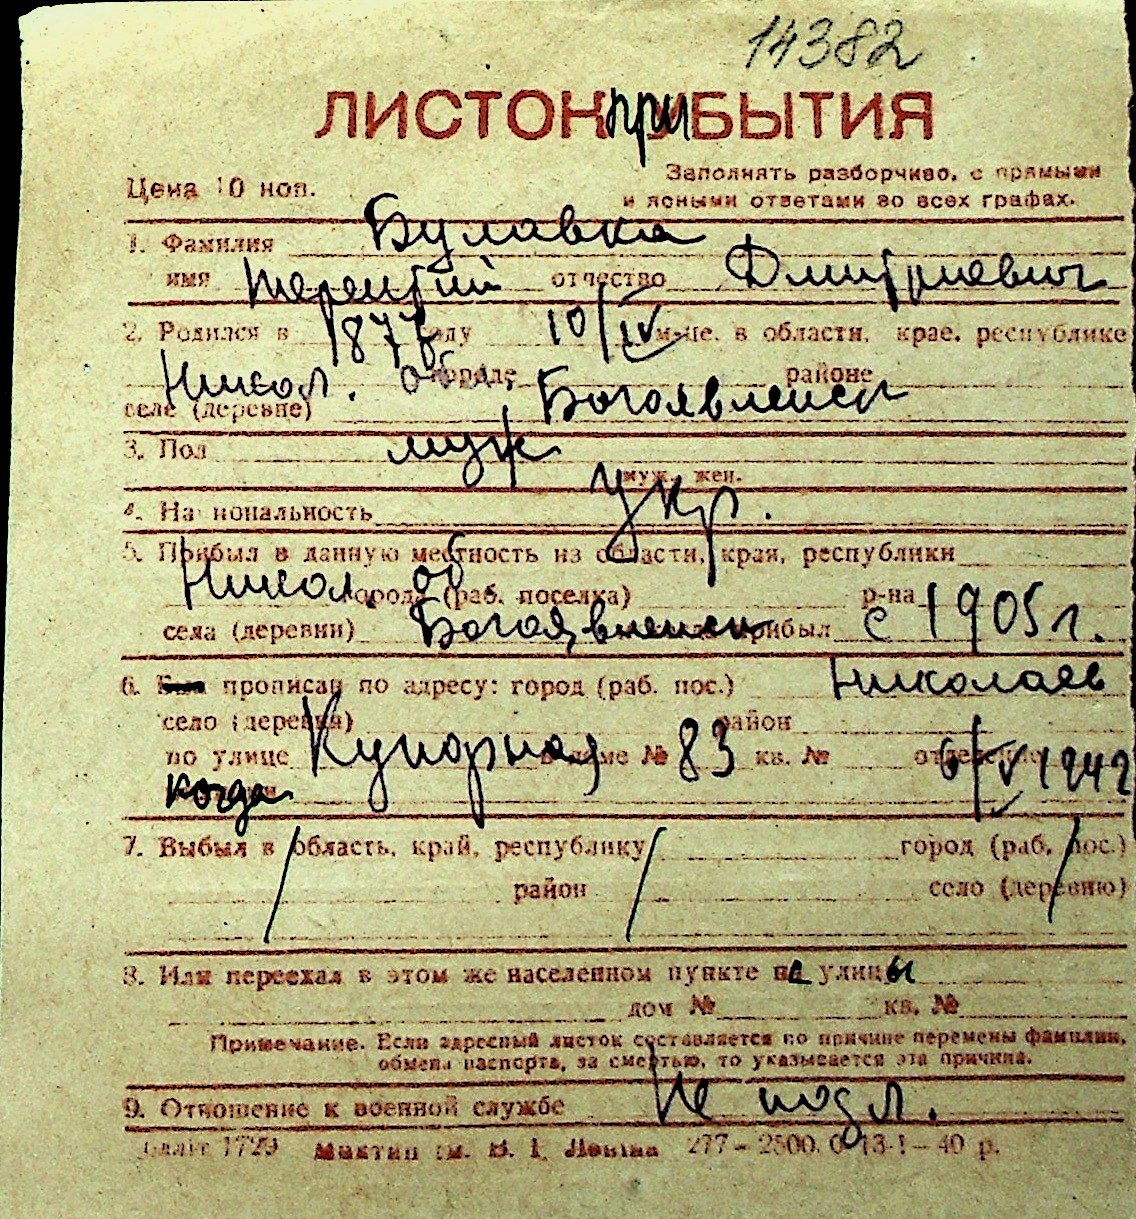 14382
ЛИСТОК прибытия
Цена 10 коп.
Заполнять разборчиво, с прямыми
и ясными ответами во всех графах.
1. Фамилия Булавка
имя Терентий отчество Дмитриевич
2. Родился в 1877 году 10/IV м-це, в области, крае, республике
Никол. обл., городе районе
селе (деревне) Богоявленск
3. Пол муж
муж, жен.
4. Национальность укр.
5. Прибыл в данную местность из области, края, республики
Никол. об города (раб. поселка) р-на
села (деревни) Богоявленск прибыл с 1905 г.
6. прописан по адресу: город (раб. пос.) Николаев
село (деревня) район
по улице Купорная в доме № 83 кв. № 6/V 1942
когда
7. Выбыл в область, край, республику город (раб. пос.)
район село (деревню)
8. Или переехал в этом же населенном пункте не улицы
дом № кв. №
Примечание. Если адресный листок составляется по причине перемены фамилии,
обмена паспорта, за смертью, то указывается эта причина.
9. Отношение к военной службе Не подл.
1729 им. В. І. Леніна 277 – 2500. 13-1 – 40 р.